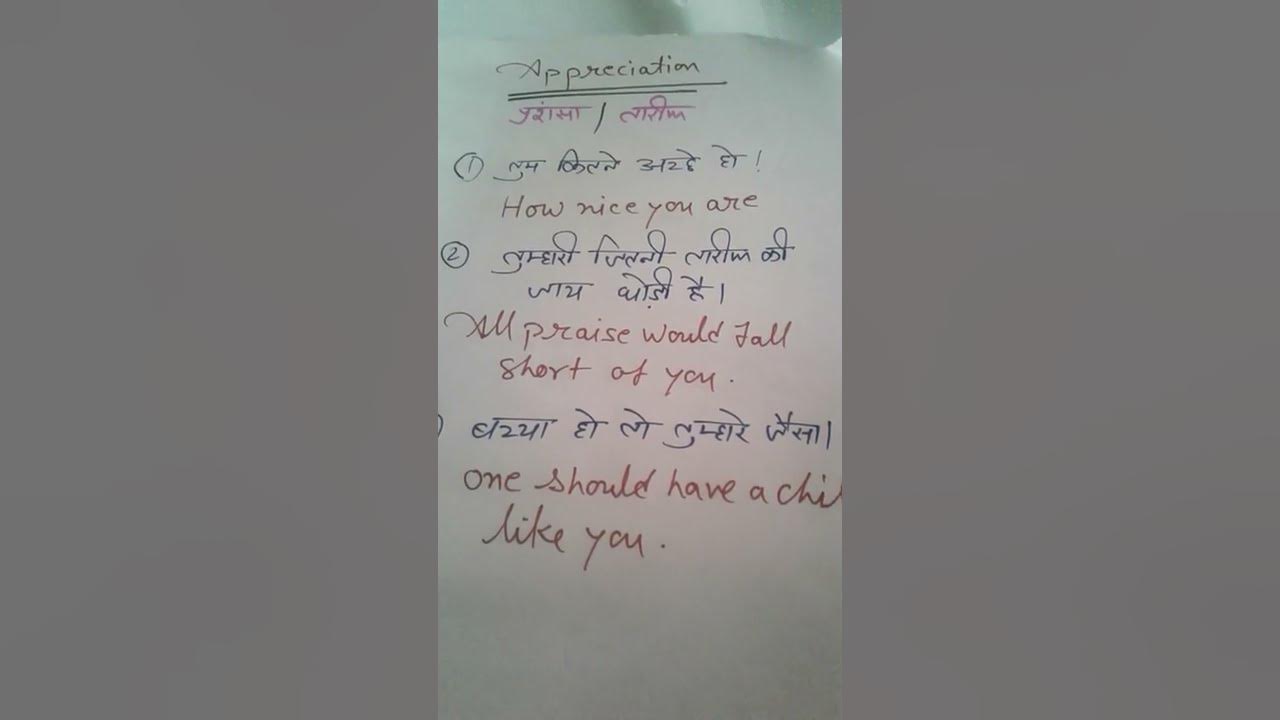 Appreciation
प्रशंसा / तारीफ
① तुम कितने अच्छे हो !
How nice you are
② तुम्हारी जितनी तारीफ की
जाय थोड़ी है।
All praise would fall
short of you.
) बच्चा हो तो तुम्हारे जैसा।
One should have a chi
like you.